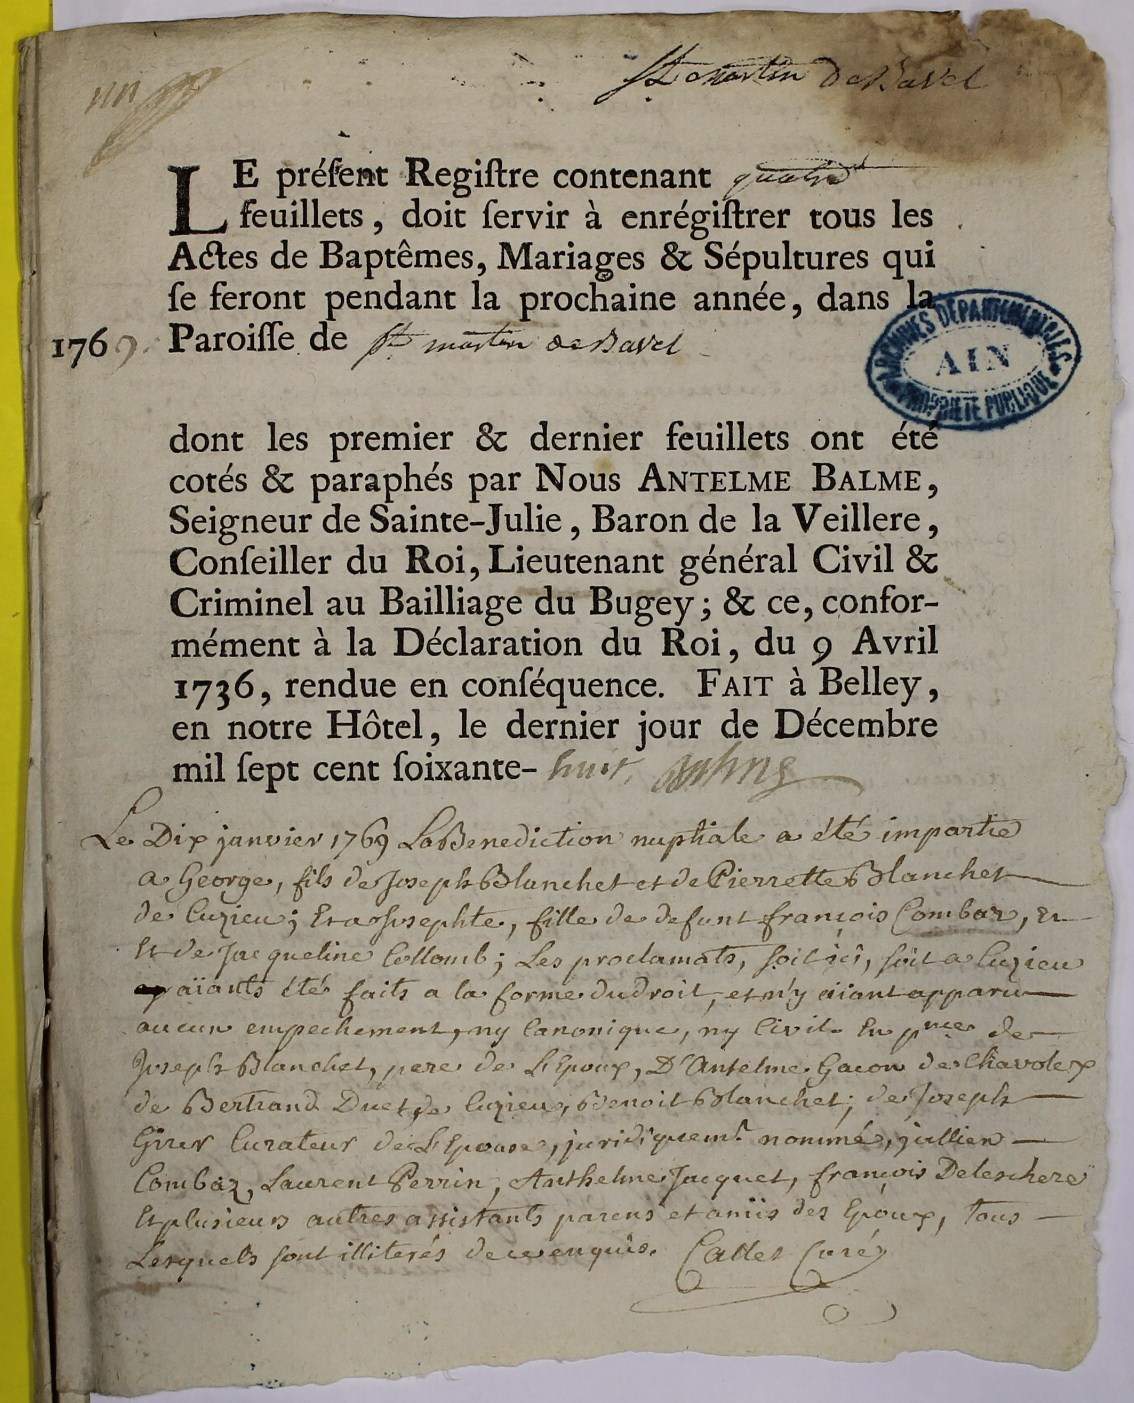 St martin de Bavel
LE préſent Regiſtre contenant quatre
feuillets, doit ſervir à enrégiſtrer tous les
Actes de Baptêmes, Mariages & Sépultures qui
ſe feront pendant la prochaine année, dans la
1769. Paroiſſe de St martin de Bavel
ARCHIVES DÉPARTEMENTALES
AIN
PROPRIÉTÉ PUBLIQUE
dont les premier & dernier feuillets ont été
cotés & paraphés par Nous ANTELME BALME,
Seigneur de Sainte-Julie, Baron de la Veillere,
Conſeiller du Roi, Lieutenant général Civil &
Criminel au Bailliage du Bugey; & ce, confor-
mément à la Déclaration du Roi, du 9 Avril
1736, rendue en conſéquence. FAIT à Belley,
en notre Hôtel, le dernier jour de Décembre
mil ſept cent ſoixante-huit.
Le Dix janvier 1769 La Benediction nuptiale a été impartie
a George, fils de Joseph Blanchet et de Pierrette Blanchet
de Cuzieu; Et a Josephte, fille de defunt françois Combaz, Et
Et de Jacqueline Collomb; Les proclamats, soit ici, soit a Cuzieu
aïants été faits a la forme du droit, et n'y aïant apparu
aucun empechement, ny Canonique, ny Civil. En pnce de
Joseph Blanchet, pere de L'Epoux, D'Antelme Gacon de Chavolex
de Bertrand Duet de Cuzieu, Benoit Blanchet; de Joseph
Curateur de L'Epouse, juridiquemt nommé, jullien
Combaz, Laurent Perrin, Anthelme Jacquet, françois Deleschere
Et plusieurs autres assistants parens et amis des Epoux, Tous
Lesquels sont illiterés de ce enquis. Callet Curé